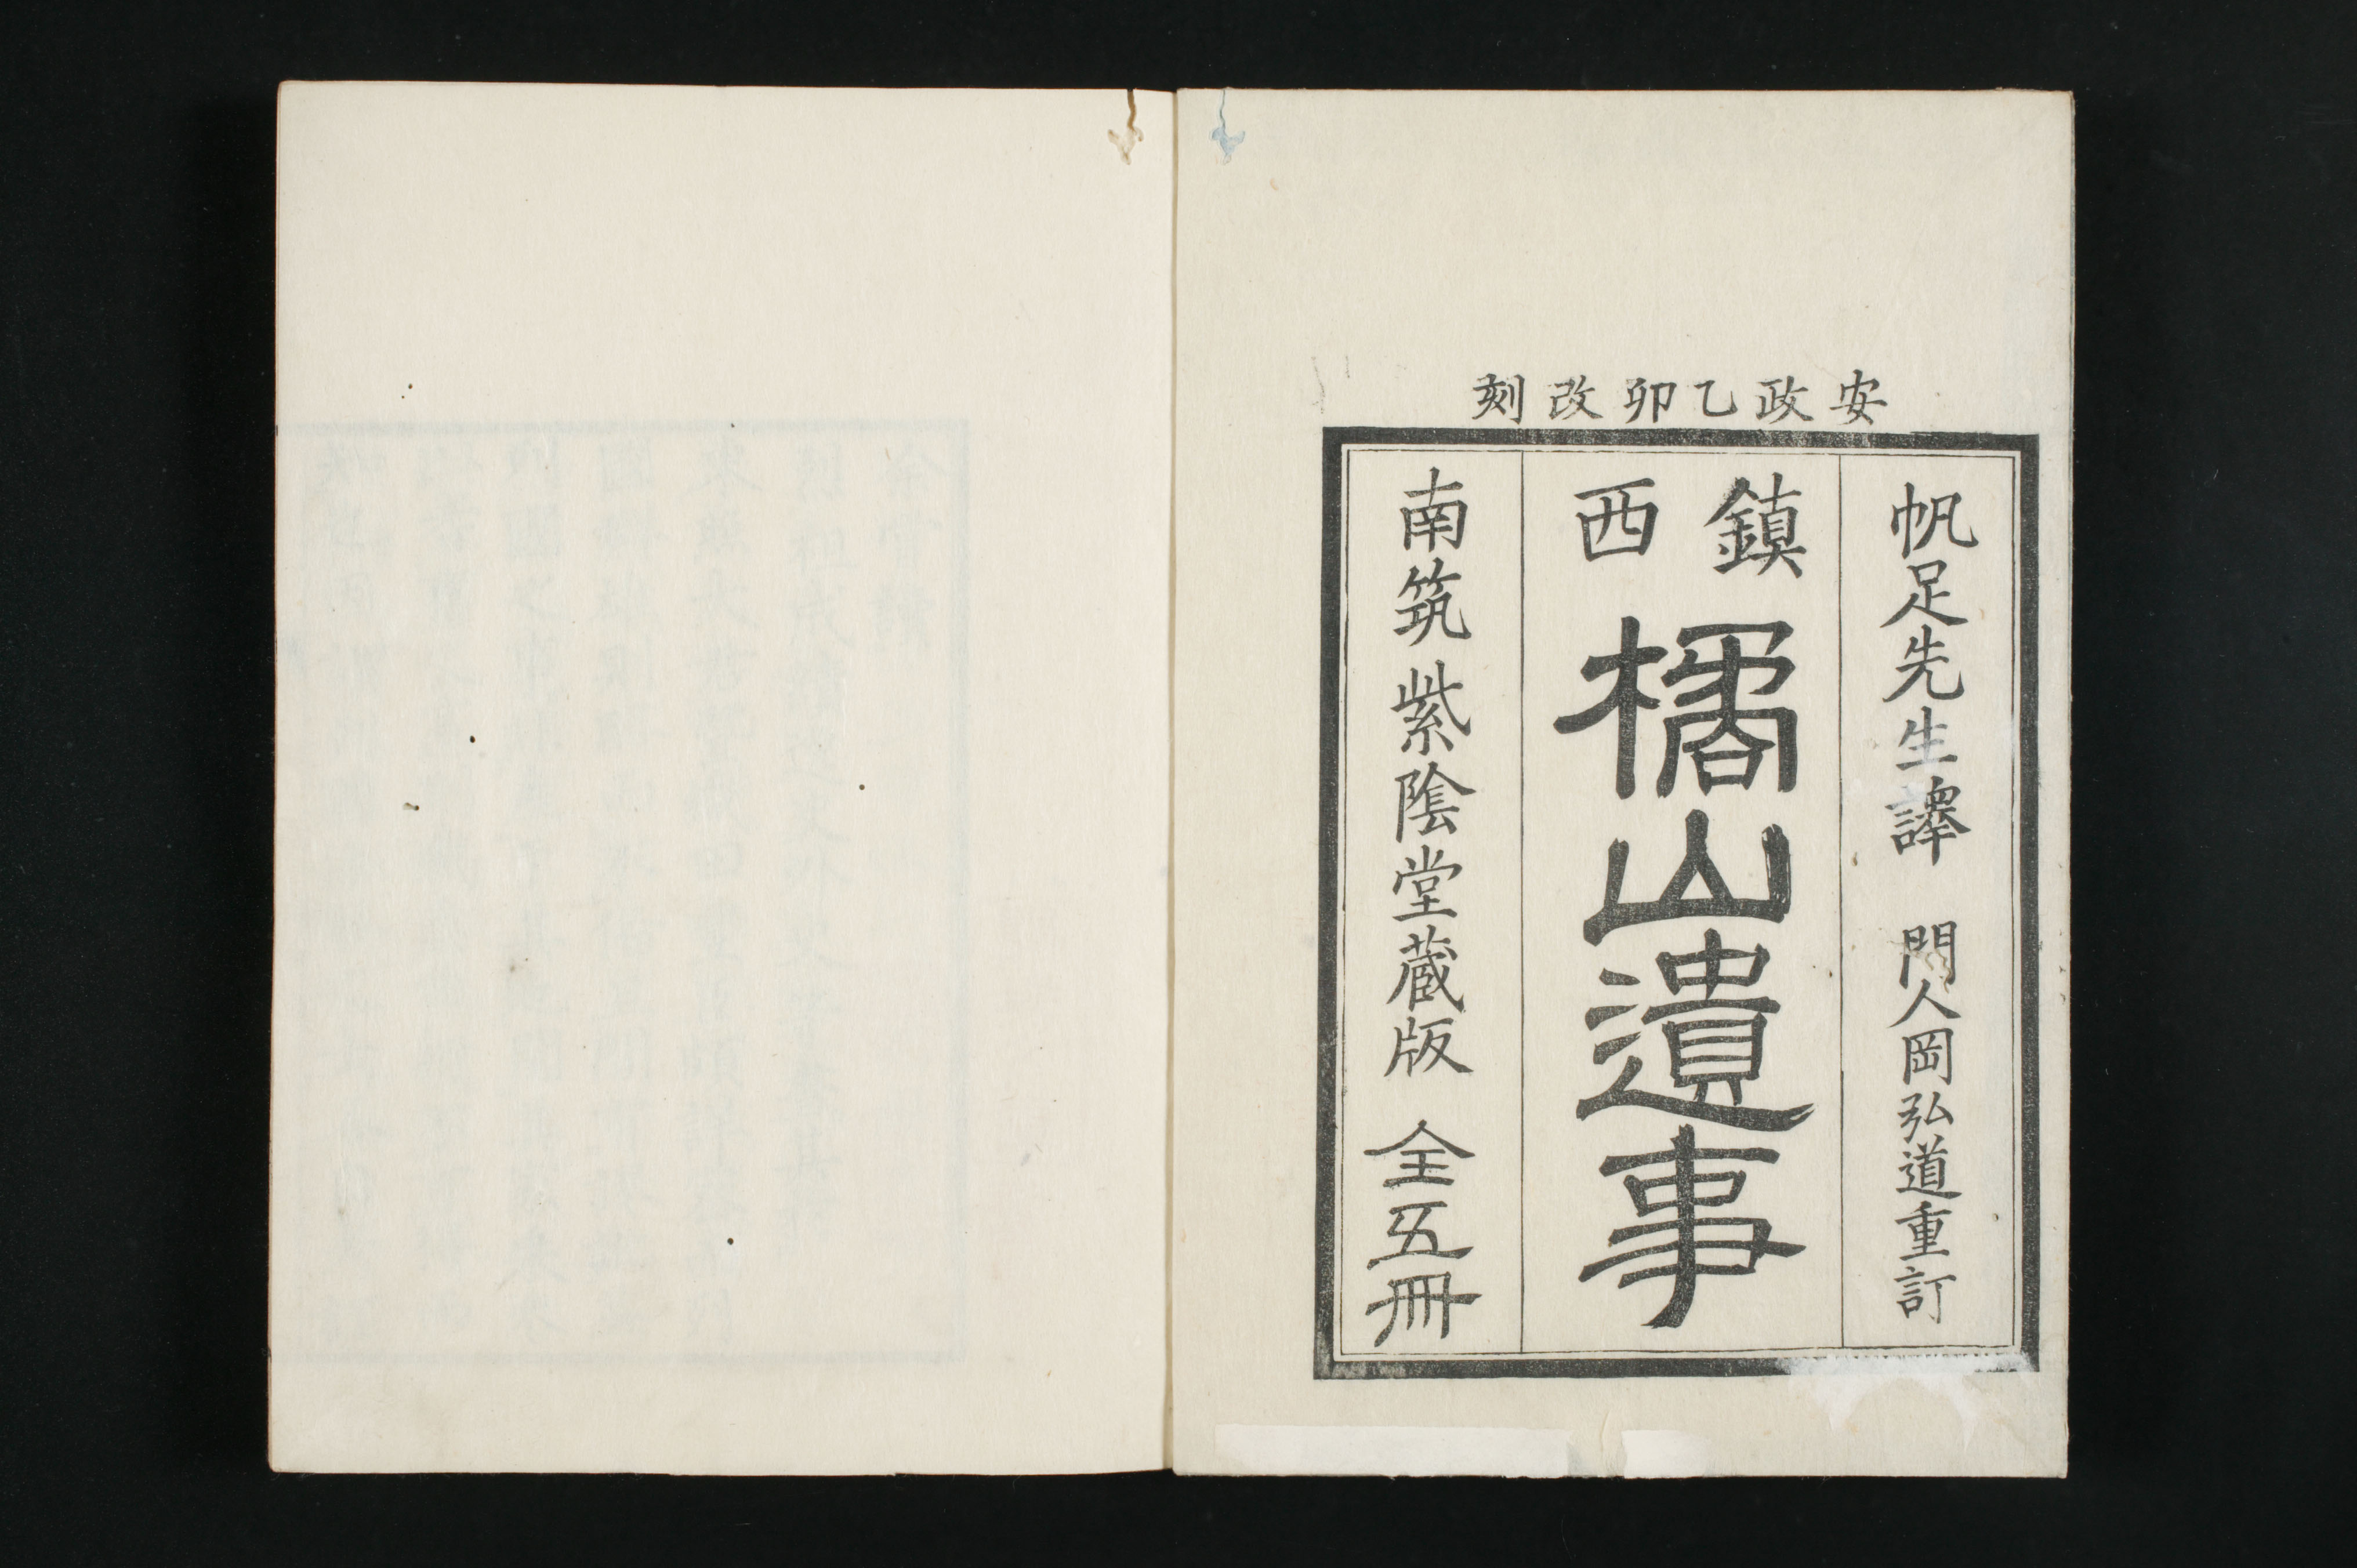 安政乙卯改刻
帆足先生譯 門人岡弘道重訂
鎮西
橘山遺事
南筑 紫陰堂蔵版 全五冊